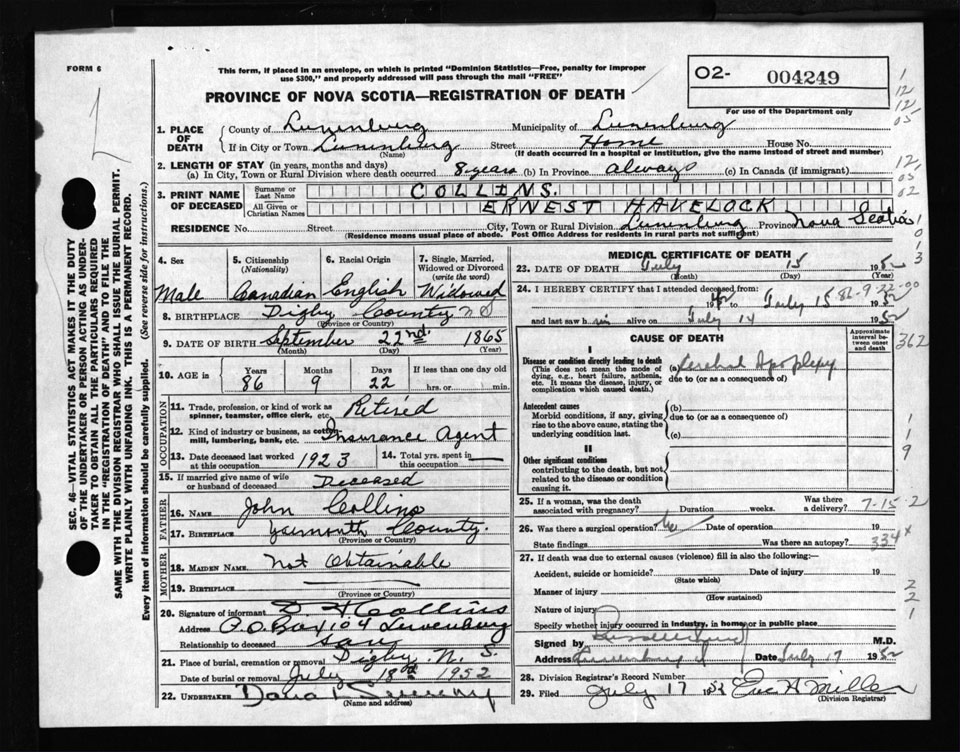 FORM 6
This form, if placed in an envelope, on which is printed "Dominion Statistics—Free, penalty for improper
use $300," and properly addressed will pass through the mail "FREE"
O2- 004249
For use of the Department only
PROVINCE OF NOVA SCOTIA—REGISTRATION OF DEATH
1. PLACE OF DEATH { County of Lunenburg Municipality of Lunenburg
If in City or Town Lunenburg Street Home House No.
(Name) (If death occurred in a hospital or institution, give the name instead of street and number)
2. LENGTH OF STAY (in years, months and days)
(a) In City, Town or Rural Division where death occurred 8 years (b) In Province always (c) In Canada (if immigrant)
3. PRINT NAME OF DECEASED { Surname or Last Name COLLINS.
All Given or Christian Names ERNEST HAVELOCK
RESIDENCE No. Street City, Town or Rural Division Lunenburg Province Nova Scotia
(Residence means usual place of abode. Post Office Address for residents in rural parts not sufficient)
4. Sex
Male
5. Citizenship (Nationality)
Canadian
6. Racial Origin
English
7. Single, Married, Widowed or Divorced (write the word)
Widowed
8. BIRTHPLACE Digby County N S
(Province or Country)
9. DATE OF BIRTH September 22nd 1865
(Month) (Day) (Year)
10. AGE in Years Months Days If less than one day old
86 9 22 hrs. or min.
OCCUPATION
11. Trade, profession, or kind of work as spinner, teamster, office clerk, etc. Retired
12. Kind of industry or business, as cotton mill, lumbering, bank, etc. Insurance Agent
13. Date deceased last worked at this occupation 1923
14. Total yrs. spent in this occupation —
15. If married give name of wife or husband of deceased Deceased
FATHER
16. NAME John Collins
17. BIRTHPLACE Yarmouth County.
(Province or Country)
MOTHER
18. MAIDEN NAME Not Obtainable
19. BIRTHPLACE
(Province or Country)
20. Signature of informant D H Collins
Address P.O Box 104 Lunenburg
Relationship to deceased son
21. Place of burial, cremation or removal Digby N. S.
Date of burial or removal July 18th 1952
22. UNDERTAKER
(Name and address)
MEDICAL CERTIFICATE OF DEATH
23. DATE OF DEATH July 15 1952
(Month) (Day) (Year)
24. I HEREBY CERTIFY that I attended deceased from:
19 to July 15 1952
86-9-22-00
and last saw him alive on July 14 1952
CAUSE OF DEATH
Approximate interval between onset and death
I
Disease or condition directly leading to death
(This does not mean the mode of dying, e.g., heart failure, asthenia, etc. It means the disease, injury, or complication which caused death.)
(a) Cerebral Apoplexy
due to (or as a consequence of)
Antecedent causes
Morbid conditions, if any, giving rise to the above cause, stating the underlying condition last.
(b)
due to (or as a consequence of)
(c)
II
Other significant conditions
contributing to the death, but not related to the disease or condition causing it.
25. If a woman, was the death associated with pregnancy? Duration weeks. Was there a delivery? 7-15-2
26. Was there a surgical operation? Date of operation 19
State findings Was there an autopsy? 334x
27. If death was due to external causes (violence) fill in also the following:—
Accident, suicide or homicide? Date of injury 19
(State which)
Manner of injury
(How sustained)
Nature of injury
Specify whether injury occurred in industry, in home, or in public place
Signed by M.D.
Address Lunenburg Date July 17 1952
28. Division Registrar's Record Number
29. Filed July 17 1952 Eva A Miller
(Division Registrar)
1
12
12
05
12
05
02
1
0
1
3
362
1
1
9
2
2
1
SEC. 46—VITAL STATISTICS ACT MAKES IT THE DUTY
OF THE UNDERTAKER OR PERSON ACTING AS UNDERTAKER
TO OBTAIN ALL THE PARTICULARS REQUIRED
IN THE "REGISTRATION OF DEATH" AND TO FILE THE
SAME WITH THE DIVISION REGISTRAR WHO SHALL ISSUE THE BURIAL PERMIT.
WRITE PLAINLY WITH UNFADING INK. THIS IS A PERMANENT RECORD.
Every item of information should be carefully supplied. (See reverse side for instructions.)